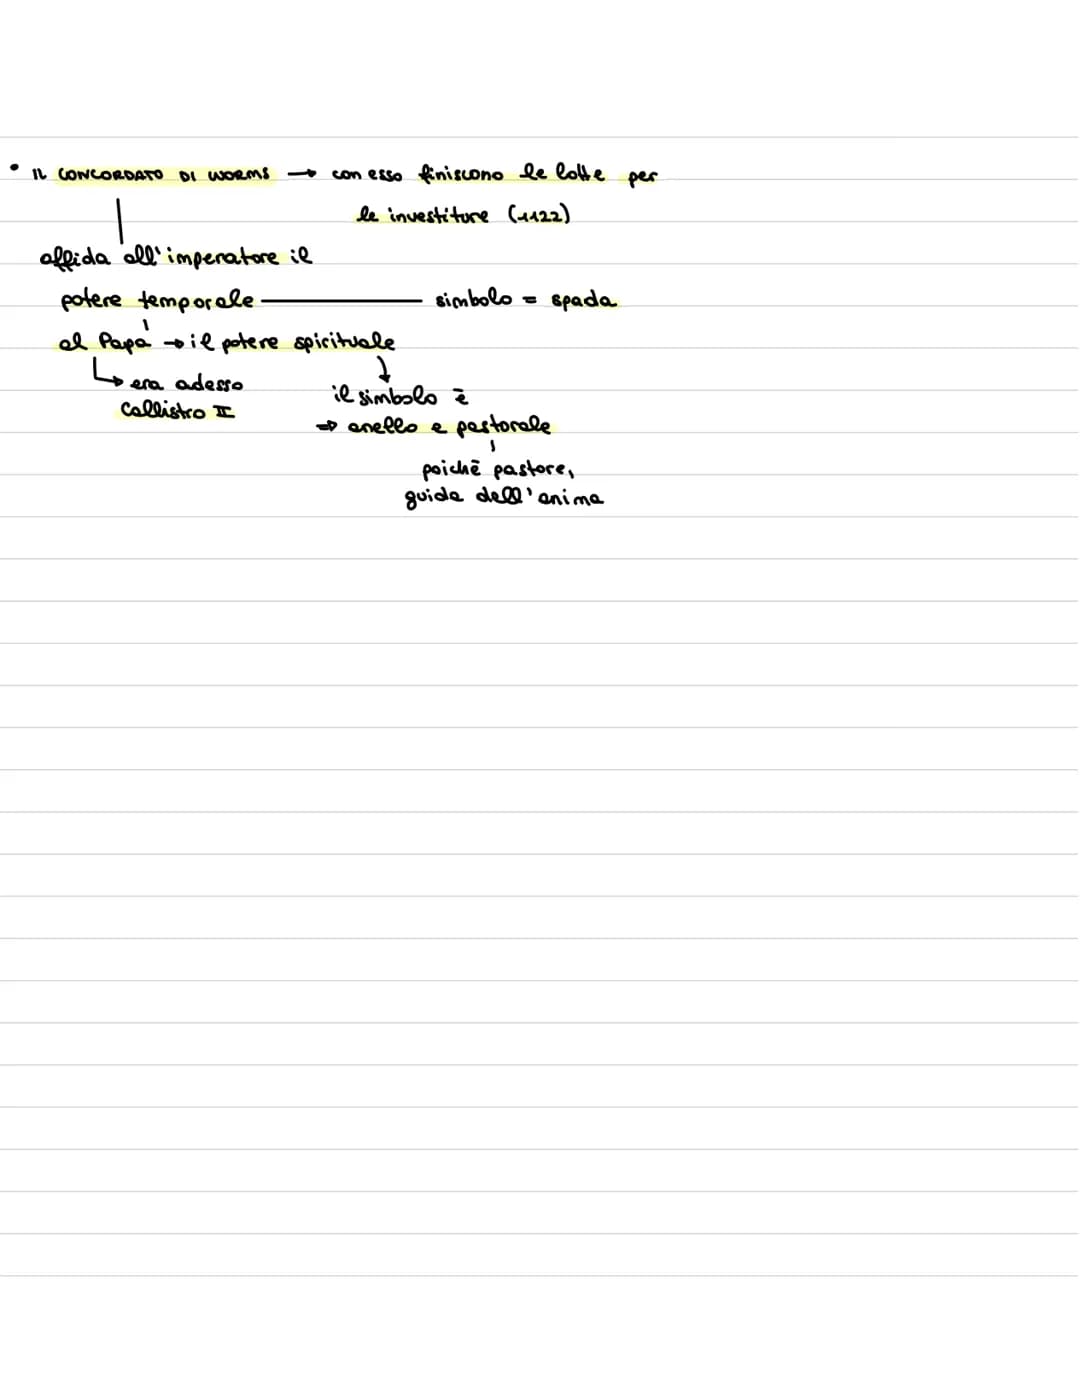 • IL CONCORDATO DI WORMS → con esso finiscono le lotte per
le investiture (1122)
affida all'imperatore il
potere temporale — simbolo = spada
al Papa → il potere spirituale
↳ era adesso
Callistro II
il simbolo è
⇒ anello e pastorale
poichè pastore,
guida dell'anima